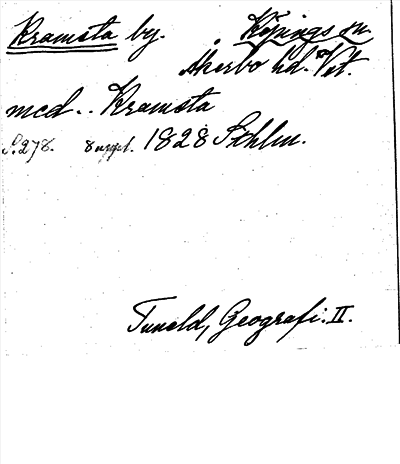 Kramsta by. Köpings sn
Åkerbo hd. Vst.
med .. Kramsta
S. 278. 8 uppl. 1828 Sthlm.
Tuneld, Geografi. II.